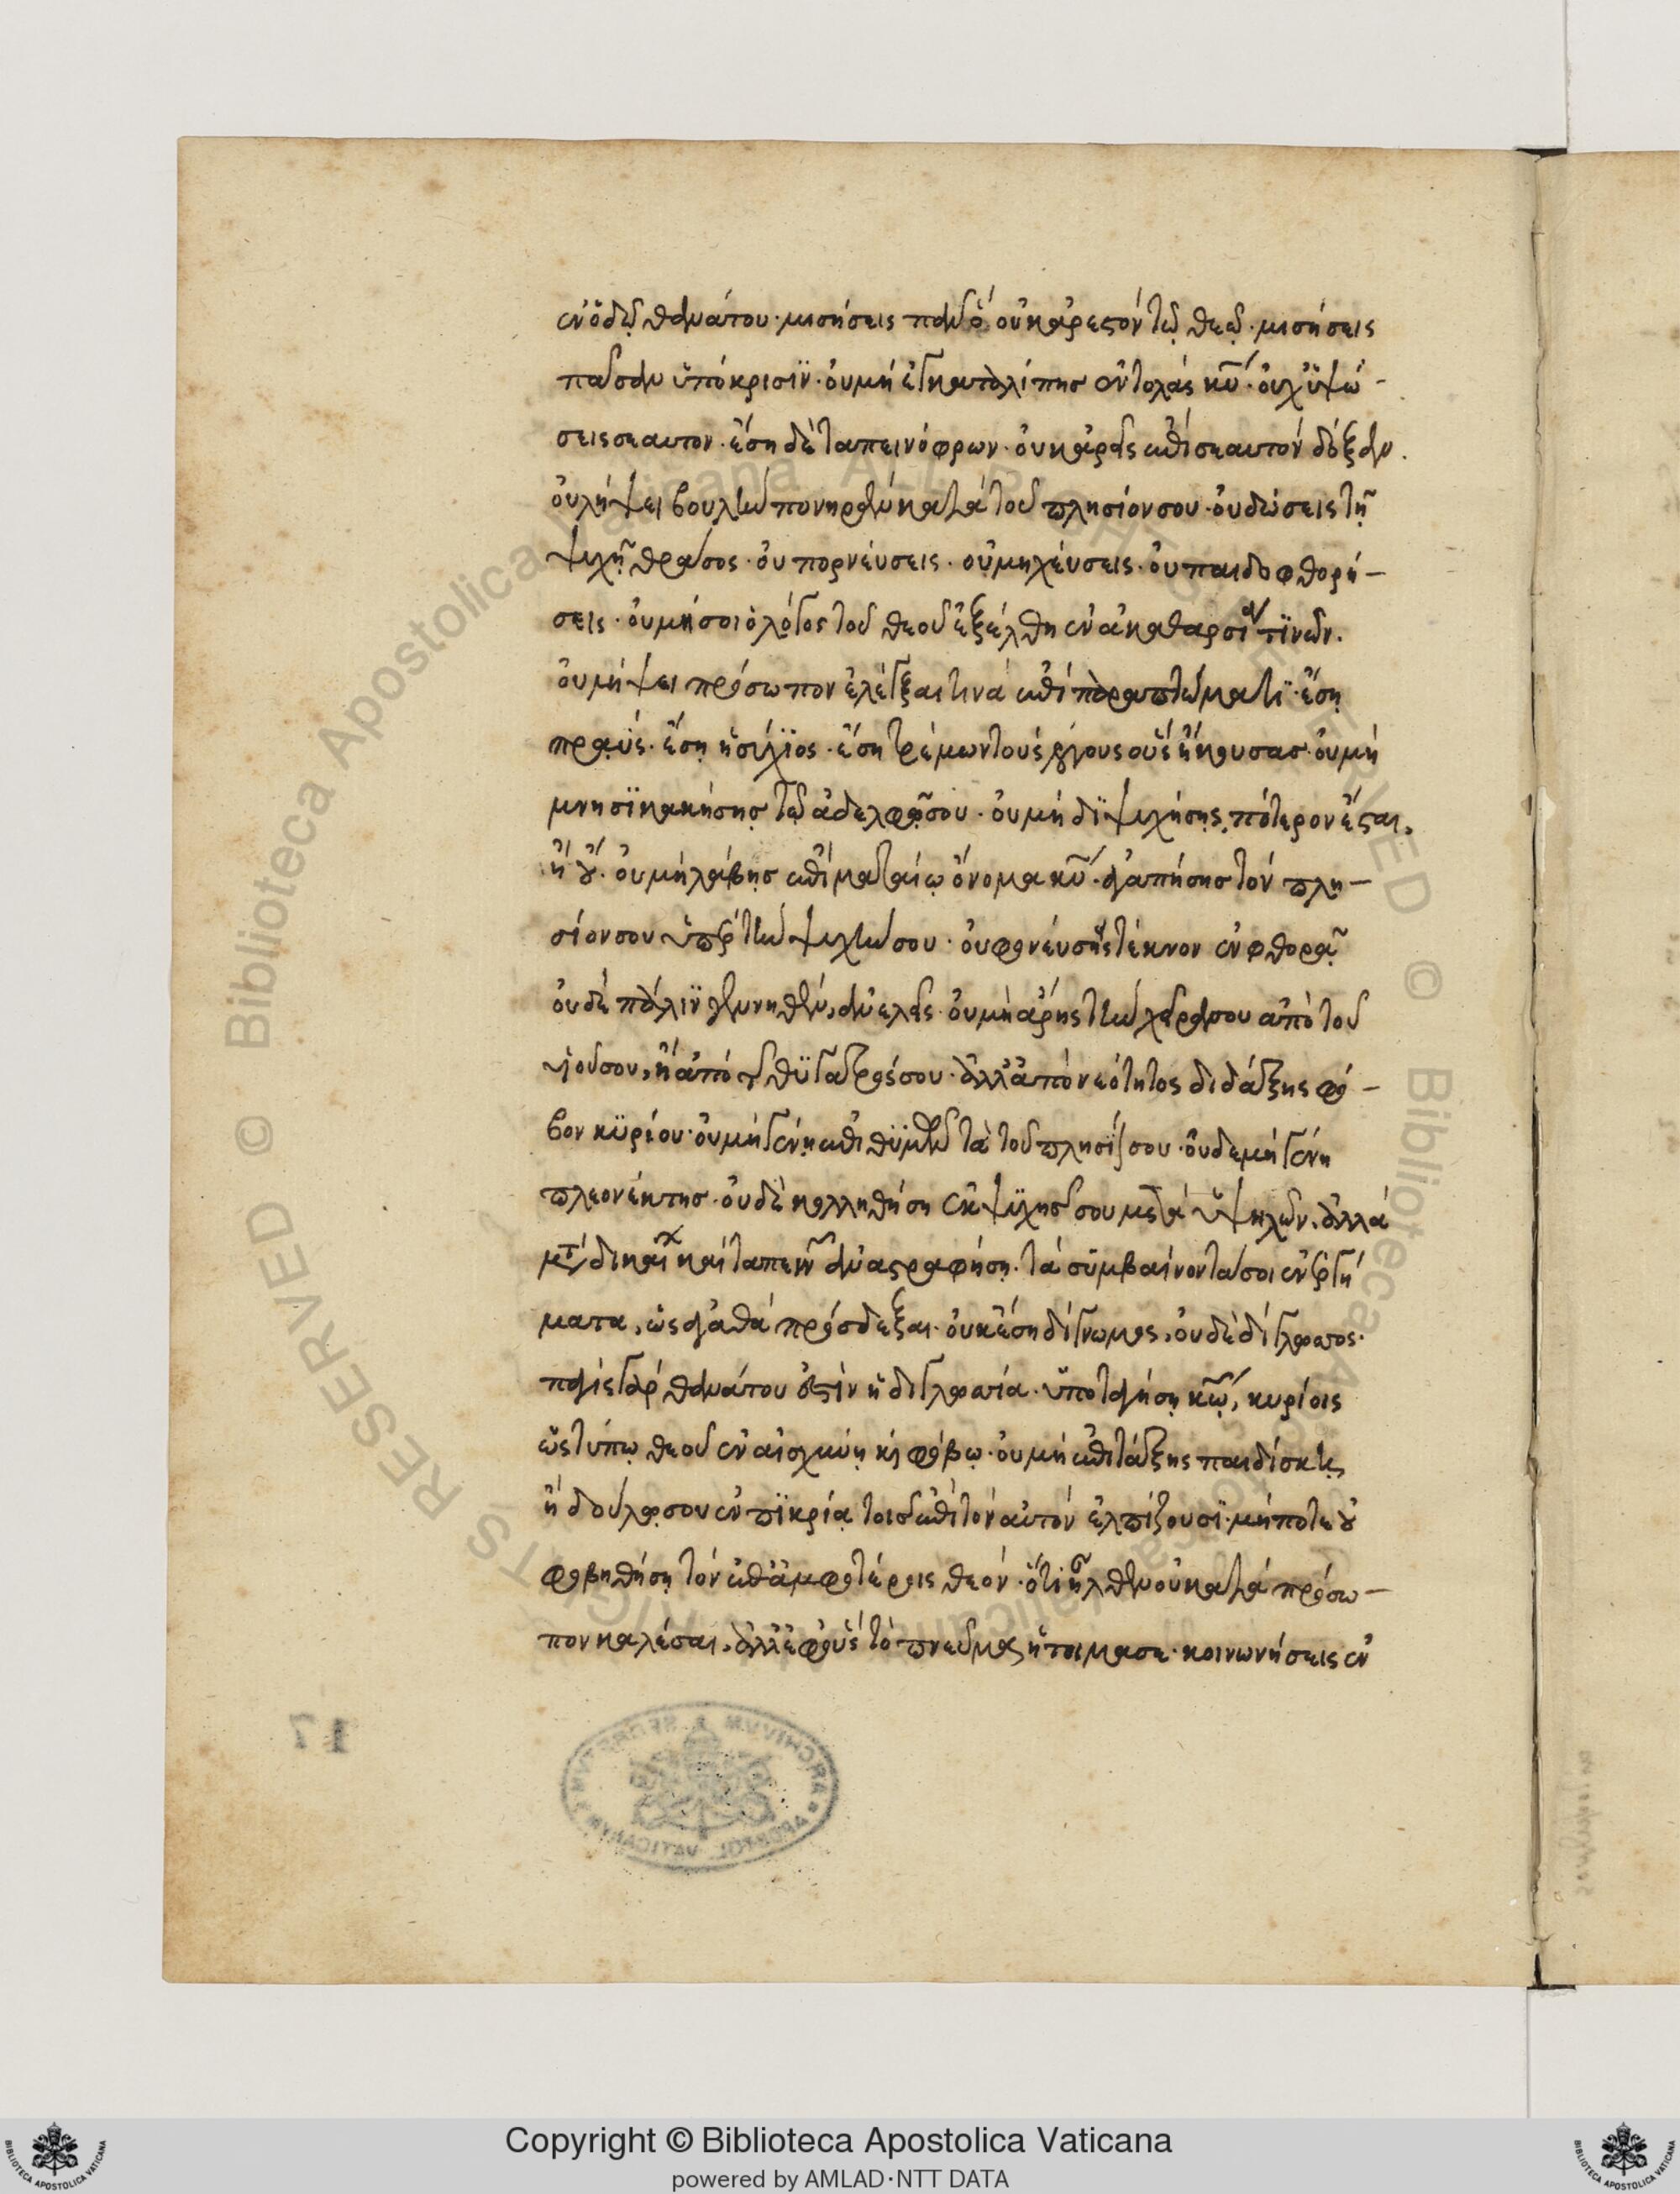 ἐν ὁδῷ θανάτου· μισήσεις πᾶν ὃ οὐκ ἀρεστόν τῷ θεῷ· μισήσεις
πᾶσαν ὑπόκρισϊν· οὐ μή ἐγκαταλίπης ἐντολάς κυ· οὐχ ὑψώ-
σεις σεαυτον· ἔση δὲ ταπεινόφρων· οὐκ ἀρεῖς ἐπί σεαυτόν δόξαν.
οὐ λήψει βουλὴν πονηράν κατά τοῦ πλησίον σου· οὐ δώσεις τῇ
ψυχῇ θράσος· οὐ πορνεύσεις· οὐ μηχεύσεις· οὐ παιδοφθορή-
σεις· οὐ μή σοι ὁ λόγος τοῦ θεοῦ ἐξέλθη ἐν ἀκαθαρσία τϊνῶν.
οὐ μήψει πρόσωπον ἐλέγξαι τινά ἐπί παραπτώματϊ· ἔσῃ
πραΰς· ἔσῃ ἡσύχϊος· ἔση τρέμων τούς λόγους οὕς ἤκουσας· οὐ μή
μνησϊκακήσῃς τῷ ἀδελφῷ σου· οὐ μή δϊψυχήσῃς, πότερον ἔσται,
ἤ οὔ· οὐ μή λάβῃς ἐπί ματαίῳ ὄνομα κυ· ἀγαπήσης τόν πλη-
σίον σου ὑπέρ τὴν ψυχὴν σου· οὐ φονεύσῃς τέκνον ἐν φθορᾷ
οὐδὲ πάλϊν γεννηθέν, ἀνελεῖς· οὐ μὴ ἄρῃς τὴν χεῖρά σου ἀπὸ τοῦ
υἱοῦ σου, ἤ ἀπό τῆς θϋγατρός σου· ἀλλ' ἀπό νεότητος διδάξῃς φό-
βον κϋρίου· οὐ μή γένῃ ἐπιθϋμῶν τὰ τοῦ πλησϊον σου· οὐδε μή γένη
πλεονέκτης· οὐδὲ κολληθήσῃ ἐκ ψϋχῆς σου μετά ὑψηλῶν, ἀλλά
μετά δικαίων καί ταπεινῶν ἀναστραφήσῃ· τά συμβαίνοντα σοι ἐνεργή
ματα, ὡς ἀγαθά πρόσδεξαι· οὐκ ἔσῃ δίγνωμος, οὐδὲ δίγλωσσος·
παγίς γάρ θανάτου ἐστίν ἡ διγλωσσία· ὑποταγήσῃ κω, κυρίοις
ὡς τύπῳ θεοῦ ἐν αἰσχύνῃ κὶ φόβῳ· οὐ μή ἐπιτάξῃς παιδίσκη,
ἤ δούλῳ σου ἐν πϊκρίᾳ τοῖς ἐπὶ τόν αὐτόν ἐλπίζουσϊ· μήποτε οὐ
φοβηθήσῃ τόν ἐπ' ἀμφοτέροις θεόν· ὅτι ἦλθεν οὐ κατά πρόσω-
πον καλέσαι, ἀλλ' ἐφ' οὕς τὸ πνεῦμα ἡτοιμασε· κοινωνήσεις ἐν
17